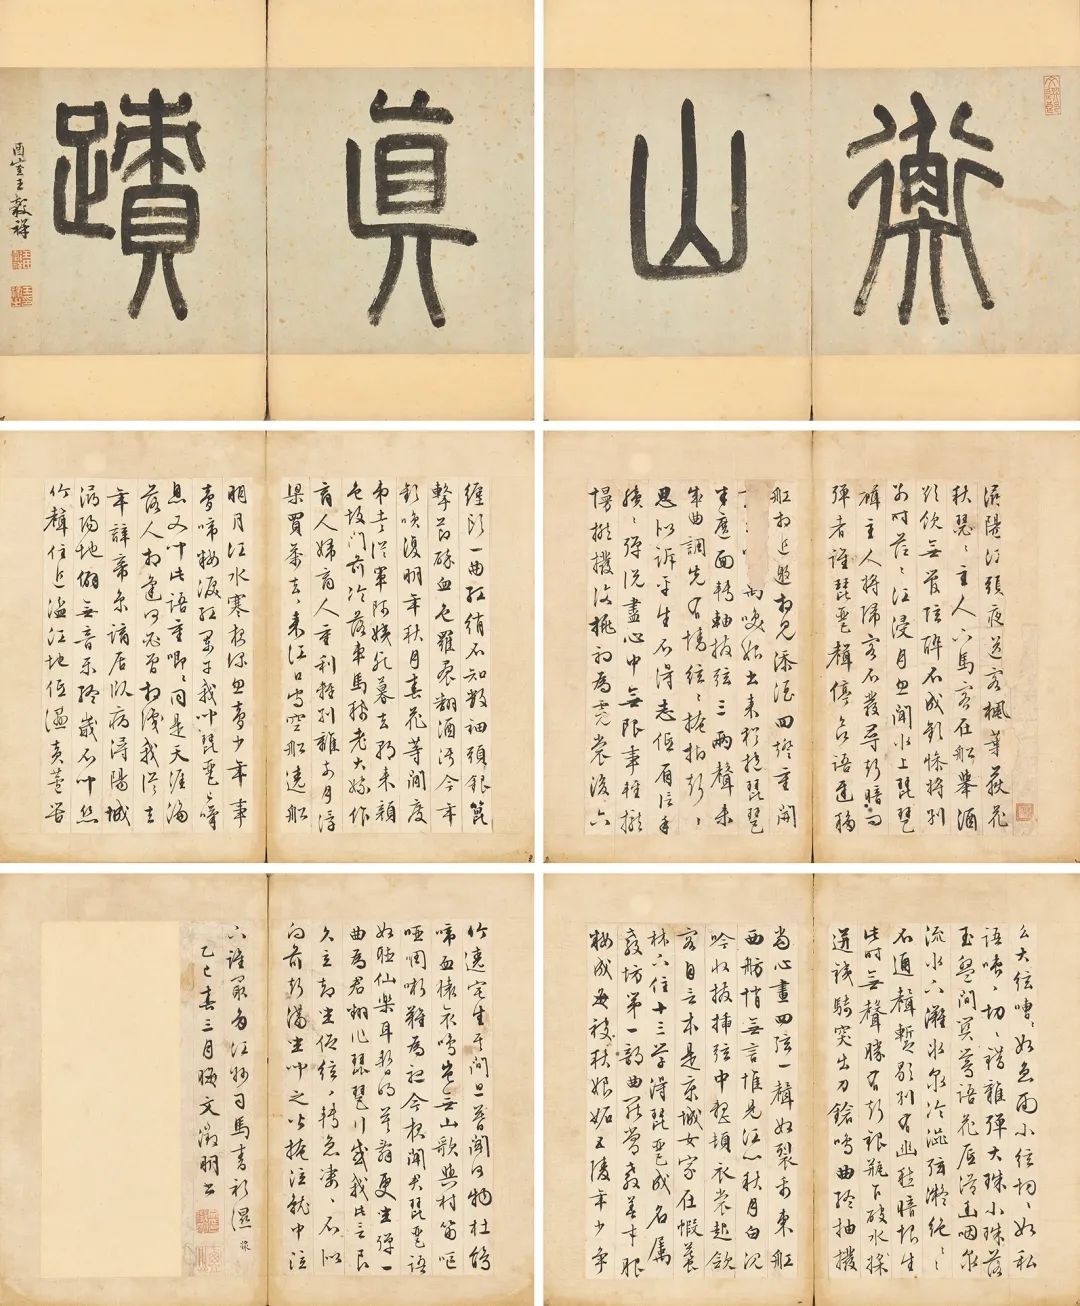 衡
山
眞
蹟
酉室王穀祥
潯陽江頭夜送客楓葉荻花
秋瑟〻主人下馬客在船舉酒
欲飲無管弦醉不成歡慘將別
別時茫〻江浸月忽聞水上琵琶
聲主人忘歸客不發尋聲暗問
彈者誰琵琶聲停欲語遲移
船相近邀相見添酒回燈重開
喚始出来猶抱琵琶
半遮面轉軸撥弦三兩聲未
成曲調先有情弦〻掩抑聲〻
思似訴平生不得志低眉信手
續〻彈說盡心中無限事輕攏
慢撚撥復挑初為霓裳後六
么大弦嘈〻如急雨小弦切〻如私
語嘈〻切〻錯雜彈大珠小珠落
玉盤間関鶯語花底滑幽咽泉
流水下灘水泉冷澀弦凝絕〻
不通聲暫歇別有幽愁暗恨生
此時無聲勝有聲銀瓶乍破水漿
迸鐵騎突出刀鎗鳴曲終抽撥
當心畫四弦一聲如裂帛東船
西舫悄無言惟見江心秋月白沉
吟收撥插弦中整頓衣裳起斂
容自言本是京城女家在蝦蟇
陵下住十三學得琵琶成名屬
教坊第一部曲罷常教善才服
妝成每被秋娘妬五陵年少爭
纏頭一曲紅綃不知數鈿頭銀篦
擊節碎血色羅裙翻酒污今年
歡笑復明年秋月春花等閒度
弟走從軍阿姨死暮去朝来顏
色故門前冷落車馬稀老大嫁作
商人婦商人重利輕別離前月浮
梁買茶去〻来江口守空船遶船
明月江水寒夜深忽夢少年事
夢啼妝淚紅闌干我聞琵琶已嘆
息又聞此語重唧〻同是天涯淪
落人相逢何必曾相識我從去
年辭帝京謫居臥病潯陽城
潯陽地僻無音樂終歲不聞絲
竹聲住近湓江地低濕黃蘆苦
竹遶宅生其間旦暮聞何物杜鵑
啼血猿哀鳴豈無山歌與村笛嘔
啞嘲哳難為聽今夜聞君琵琶語
如聽仙樂耳暫明莫辭更坐彈一
曲為君翻作琵琶行感我此言良
久立却坐促弦〻轉急凄〻不似
向前聲滿坐聞之皆掩泣就中泣
下誰最多江州司馬青衫濕
乙巳春三月晦文徵明書